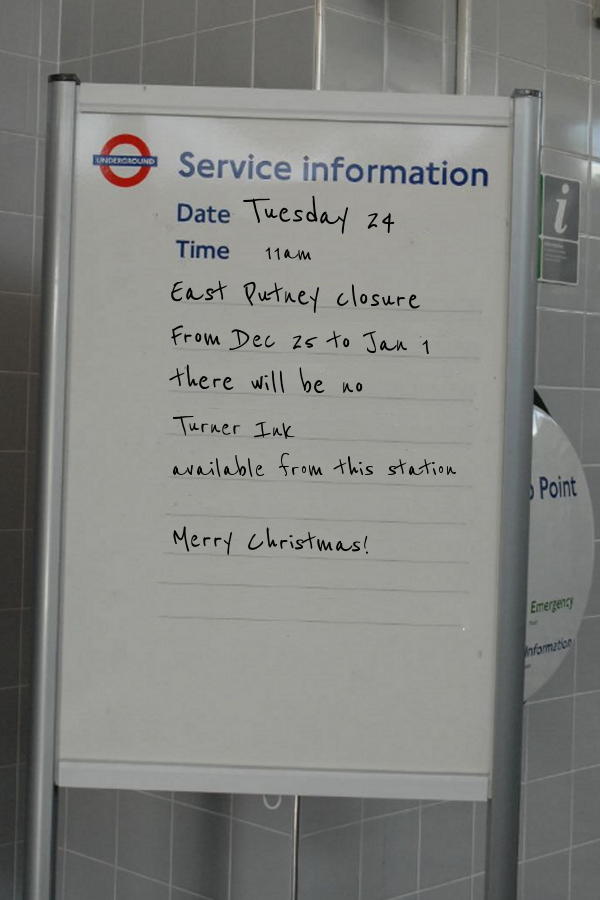 UNDERGROUND
Service information
Date Tuesday 24
Time 11am
East Putney closure
From Dec 25 to Jan 1
there will be no
Turner Ink
available from this station
Merry Christmas!
i
Point
Emergency
Information